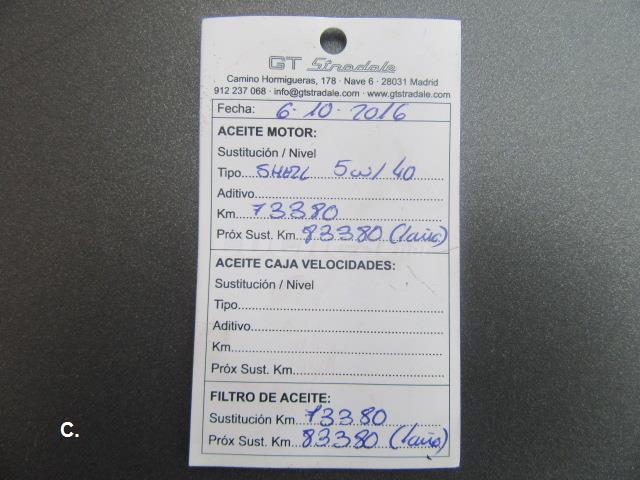 GT Stradale
Camino Hormigueras, 178 · Nave 6 · 28031 Madrid
912 237 068 · info@gtstradale.com · www.gtstradale.com
Fecha: 6-10-2016
ACEITE MOTOR:
Sustitución / Nivel
Tipo....SHELL 5w/40
Aditivo..........
Km...73380
Próx Sust. Km...83380 (1año)
ACEITE CAJA VELOCIDADES:
Sustitución / Nivel
Tipo..........
Aditivo..........
Km..........
Próx Sust. Km..........
FILTRO DE ACEITE:
Sustitución Km...73380
Próx Sust. Km...83380 (1año)
C.